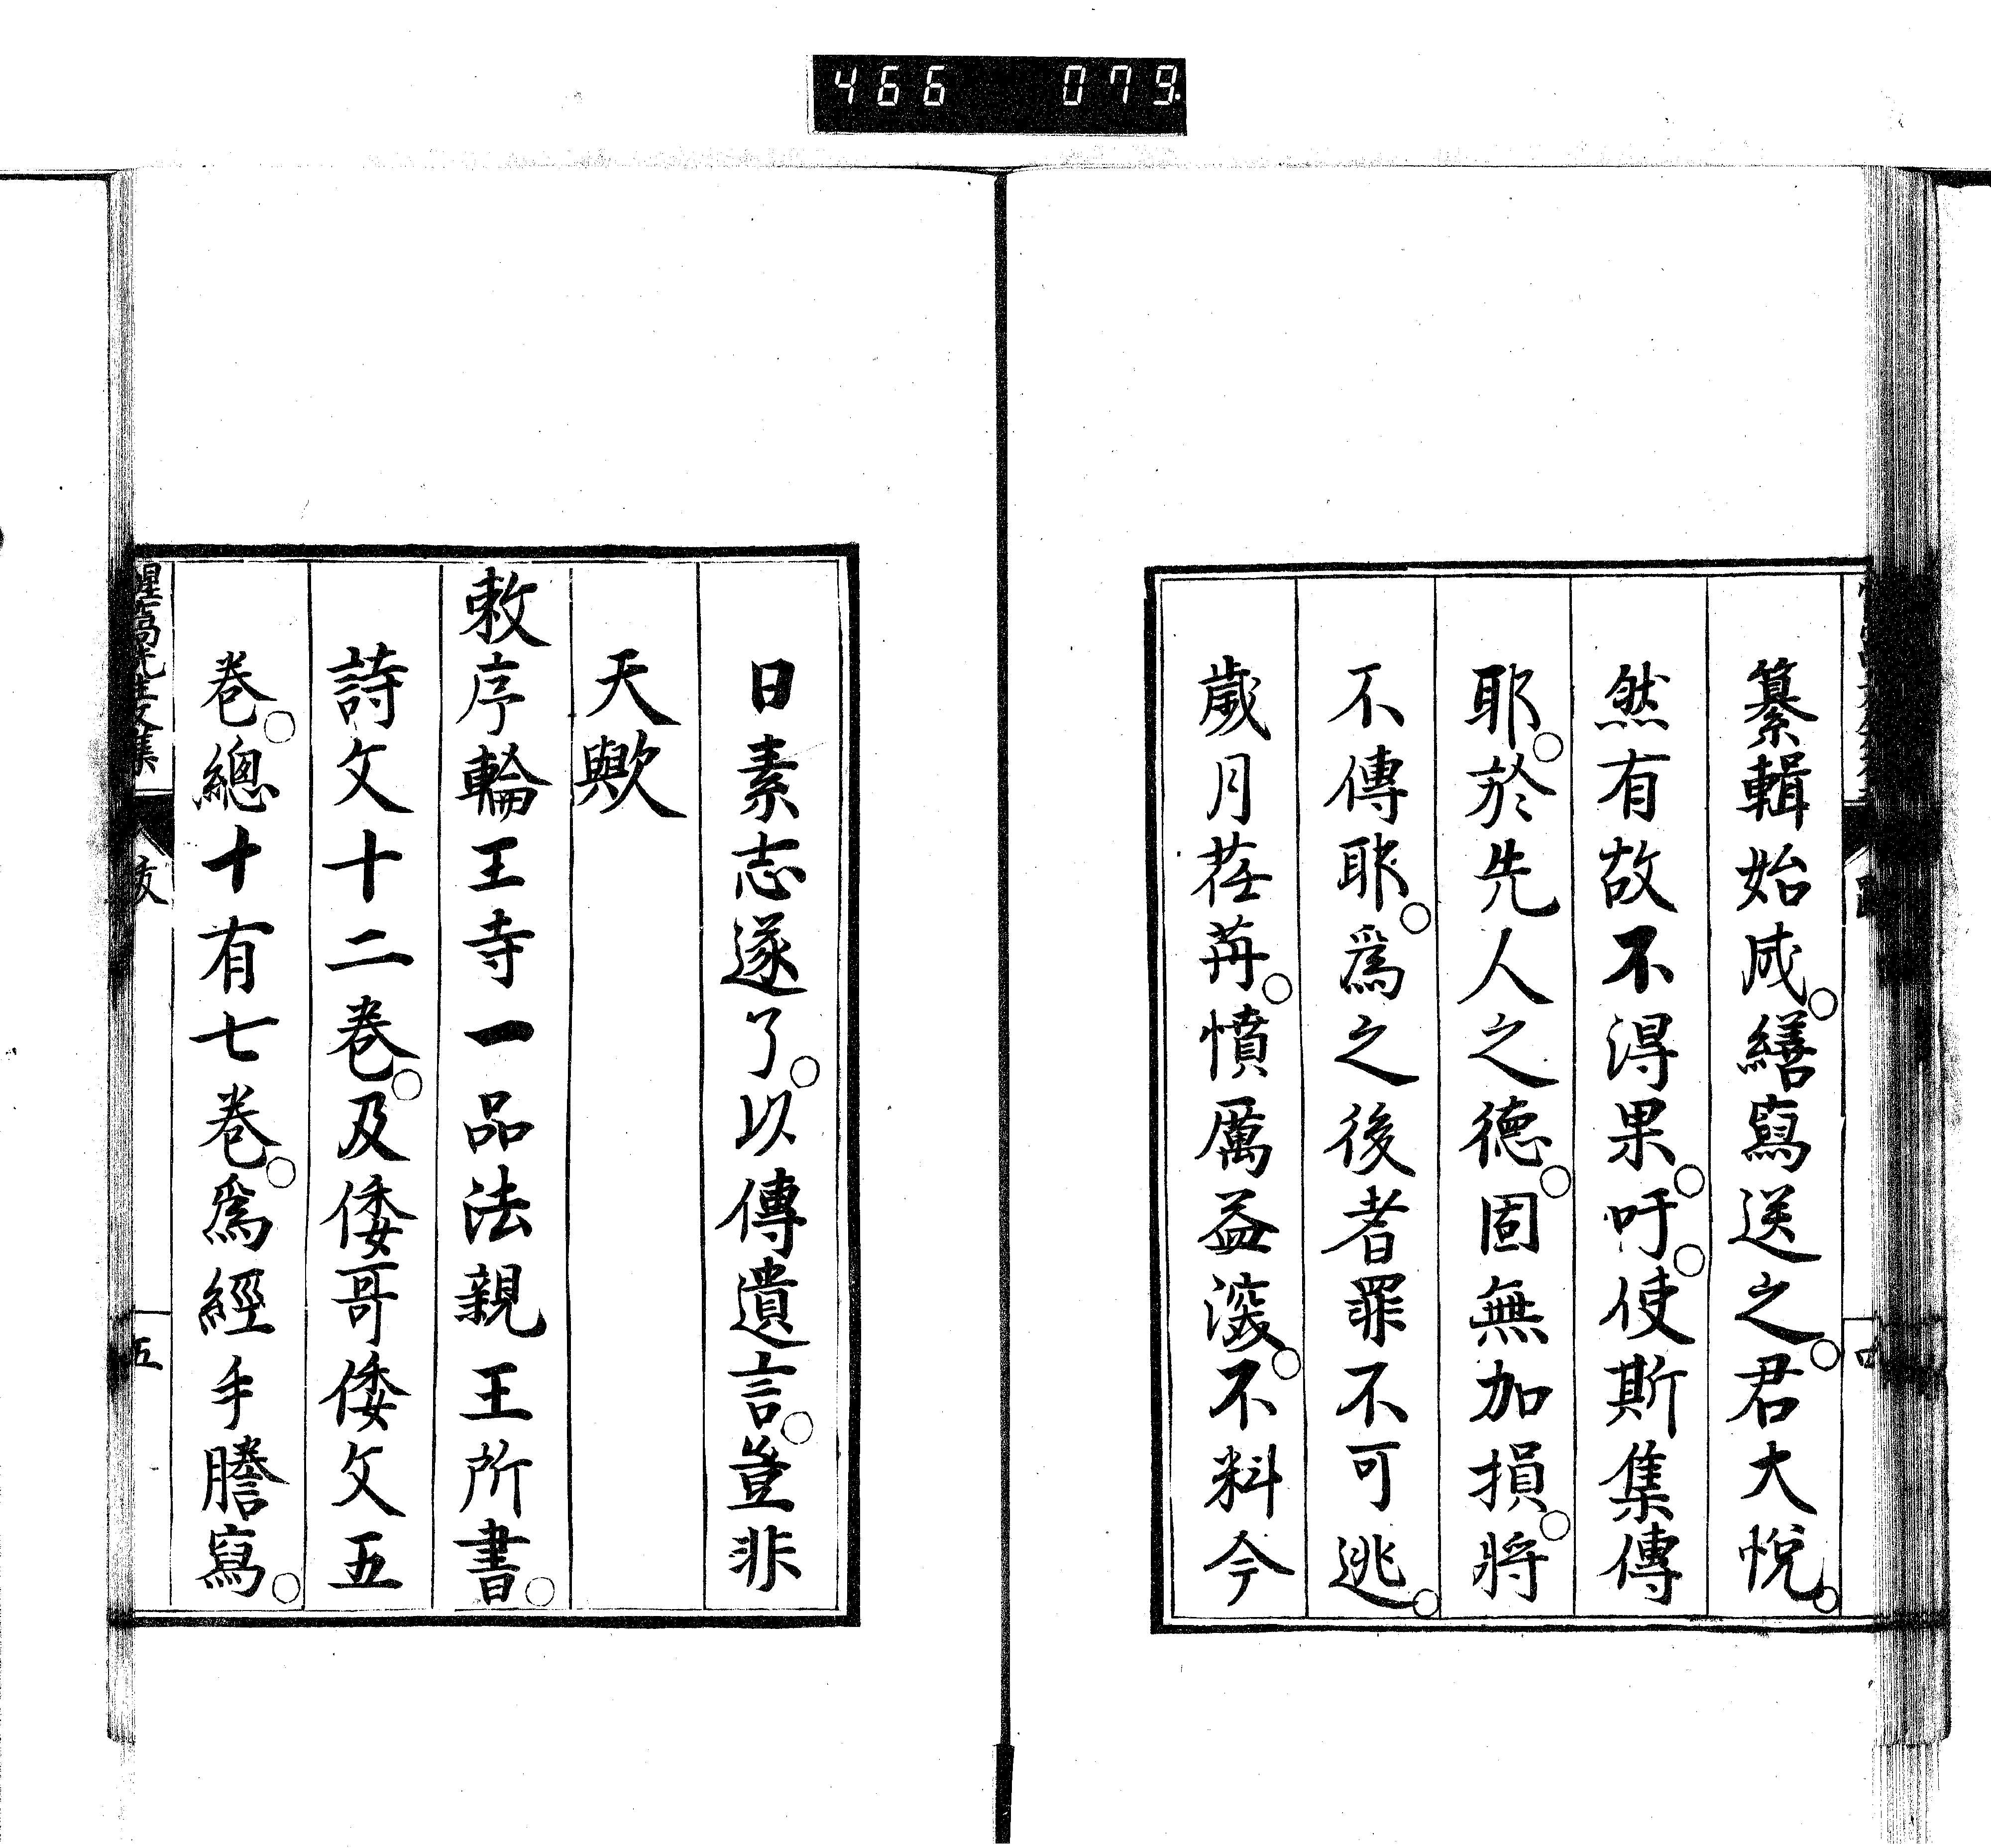 466 079
纂輯始成。繕寫送之。君大悅。
然有故不得果。吁。使斯集傳
耶。於先人之德。固無加損。將
不傳耶。爲之後者罪不可逃。
歲月荏苒。憤厲益深。不料今
日素志遂了。以傳遺言。豈非
天歟
敕序輪王寺一品法親王所書。
詩文十二卷。及倭哥倭文五
卷。總十有七卷。爲經手謄寫。
五